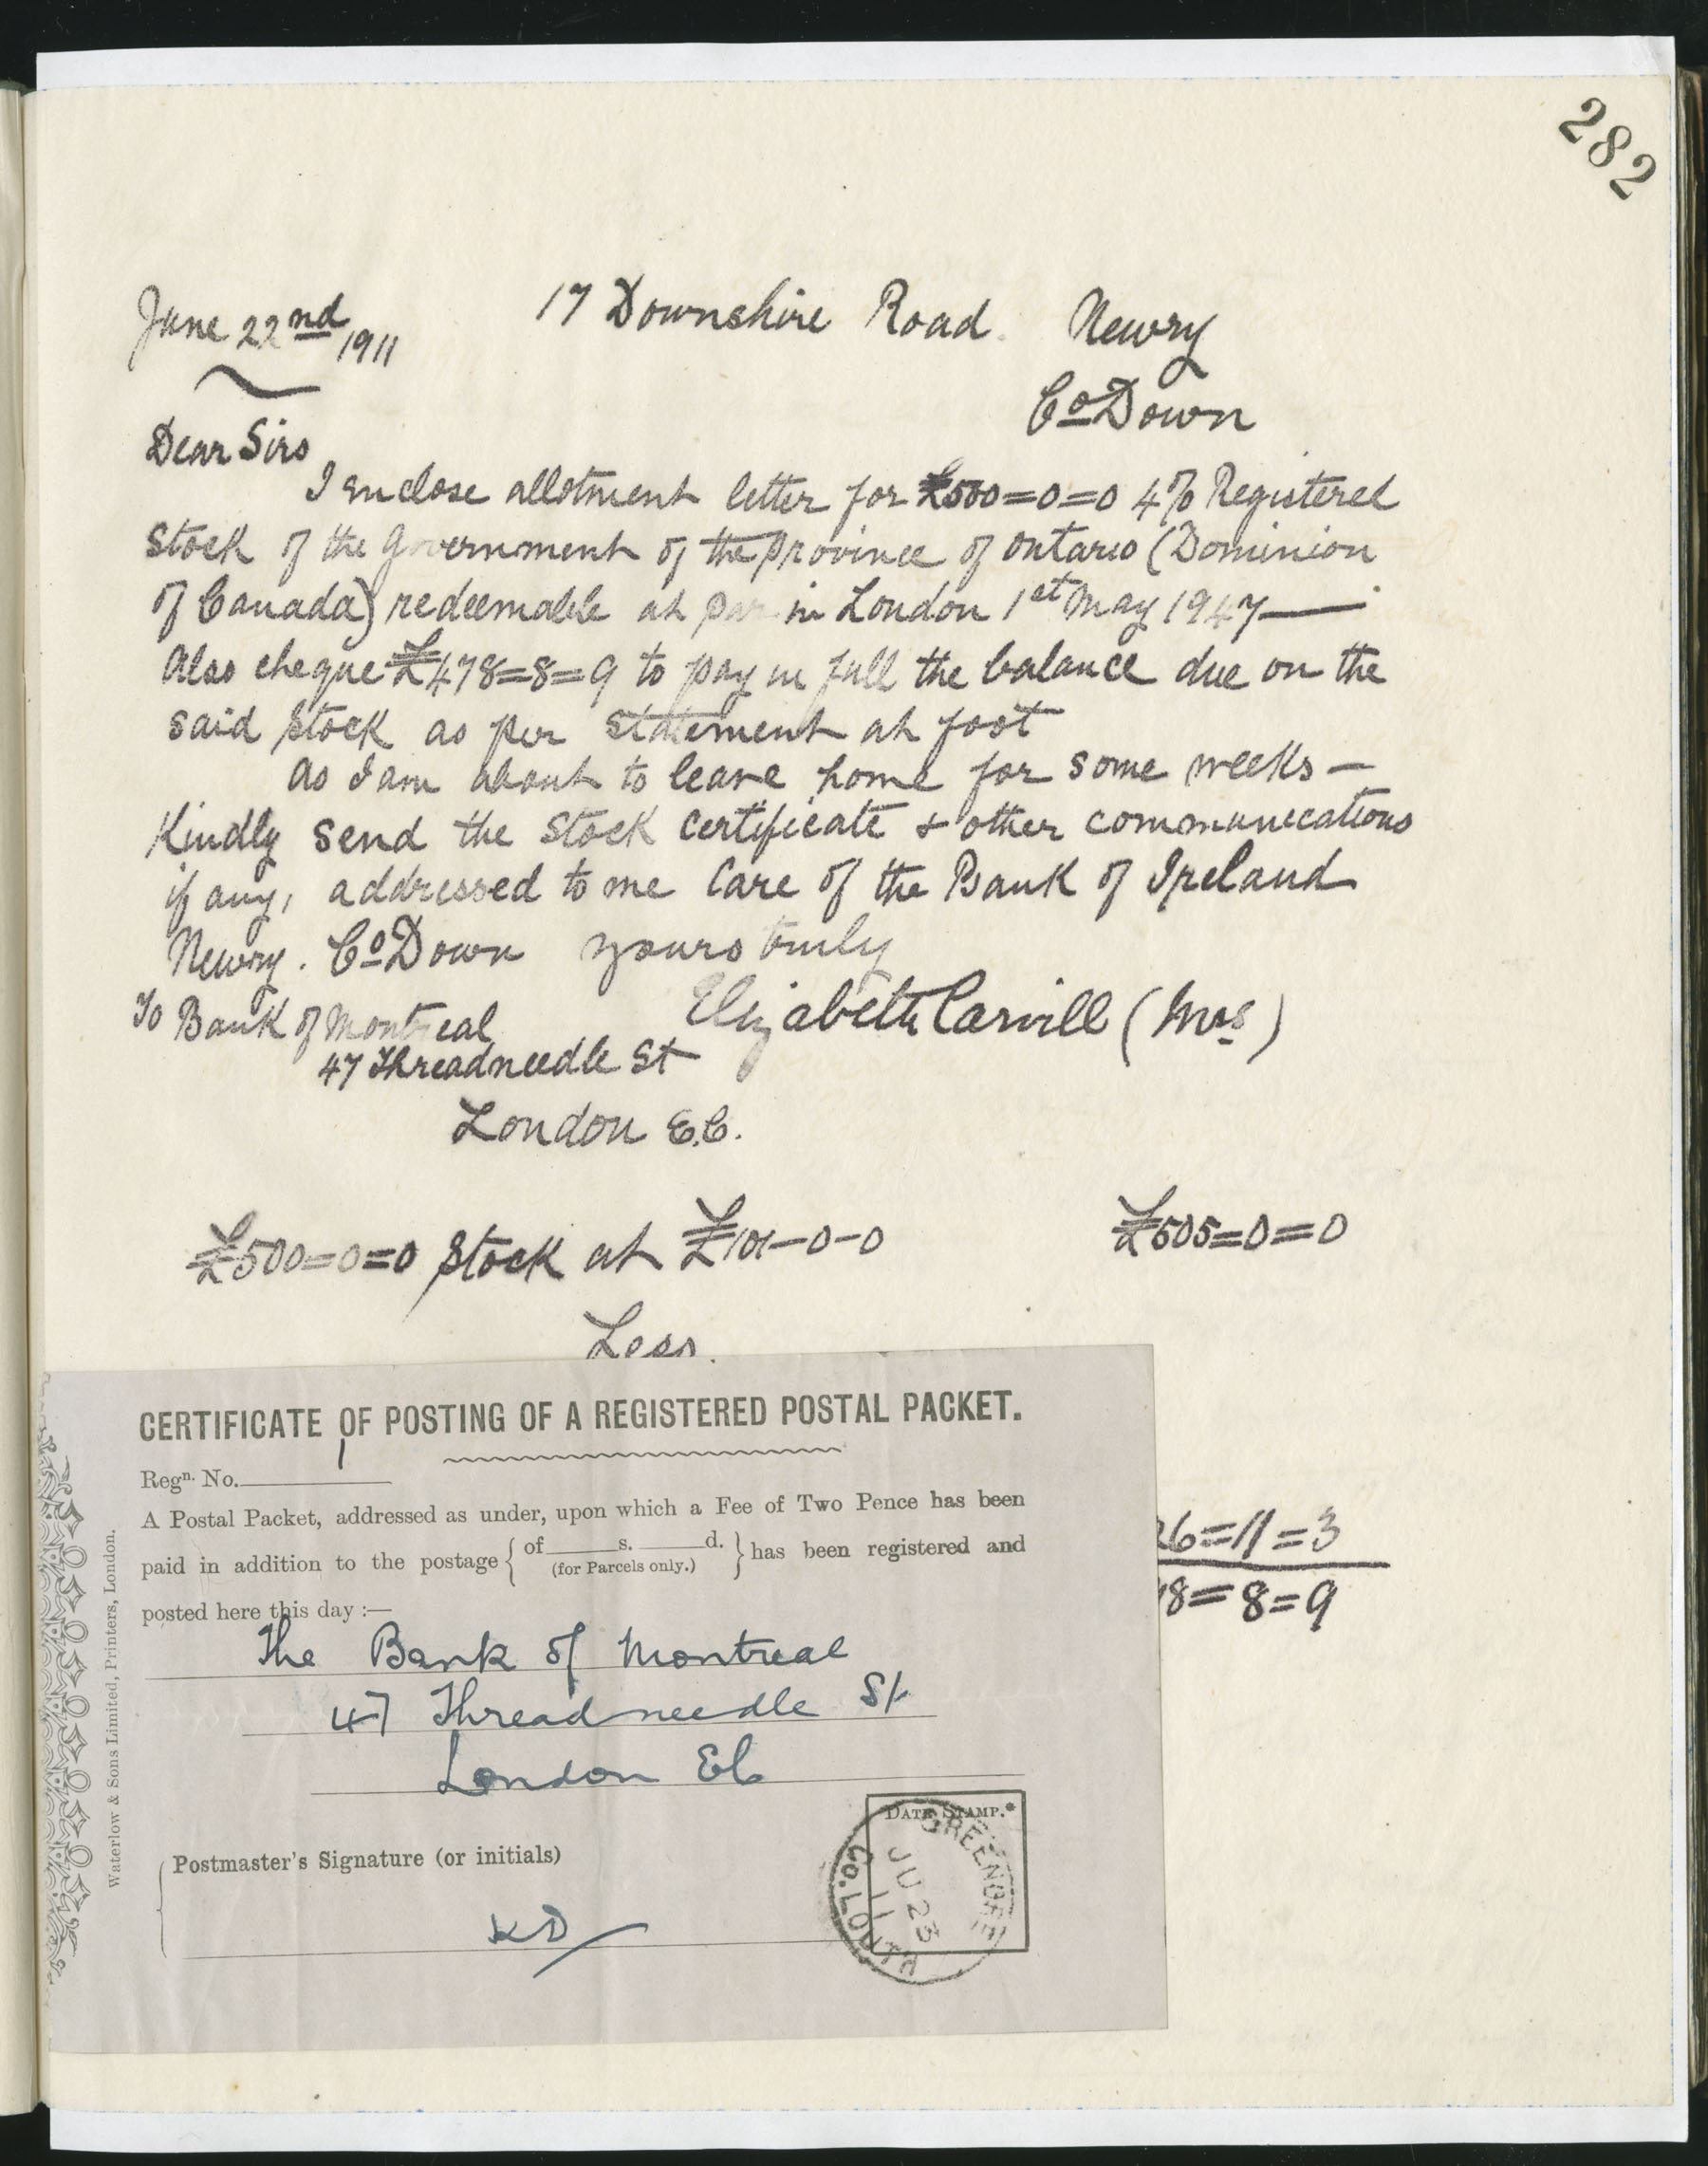 282
June 22nd 1911
17 Downshire Road Newry
Co Down
Dear Sirs
I enclose allotment letter for £500=0=0 4% Registered
Stock of the Government of the province of Ontario (Dominion
of Canada) redeemable at par in London 1st May 1947
Also cheque £478=8=9 to pay in full the balance due on the
said Stock as per statement at foot
As I am about to leave home for some weeks —
Kindly send the Stock certificate & other communications
if any, addressed to me Care of the Bank of Ireland
Newry. Co Down yours truly
Elizabeth Carvill (Mrs)
To Bank of Montreal
47 Threadneedle St
London E.C.
£500=0=0 Stock at £101-0-0 £505=0=0
Less
26=11=3
78=8=9
CERTIFICATE OF POSTING OF A REGISTERED POSTAL PACKET.
Regn. No.
A Postal Packet, addressed as under, upon which a Fee of Two Pence has been
paid in addition to the postage { of s. d. (for Parcels only.) } has been registered and
posted here this day :—
The Bank of Montreal
47 Threadneedle St
London EC
DATE STAMP.*
GREENORE
JU 23
11
CO. LOUTH
Postmaster's Signature (or initials)
KD
Waterlow & Sons Limited, Printers, London.